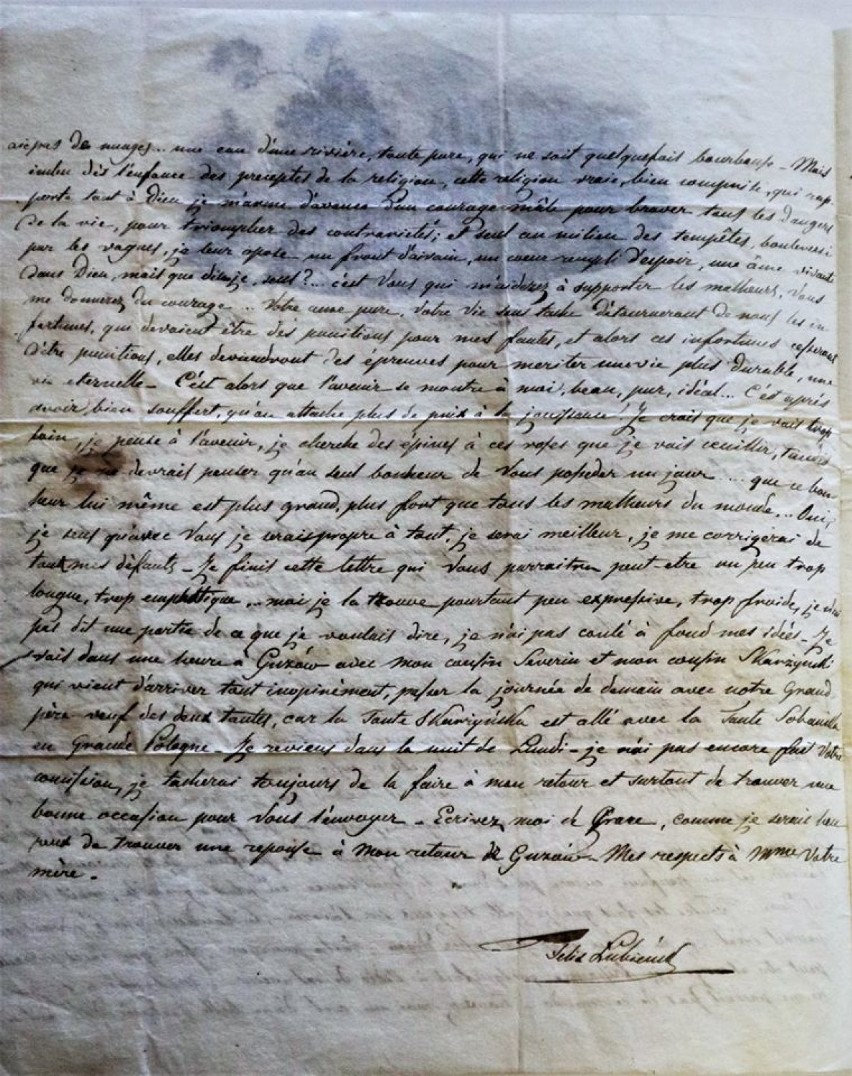 aie pas de nuages... une eau d'une rivière, toute pure, qui ne soit quelquefois bourbeuse - Mais
imbu dès l'enfance des preceptes de la religion, cette religion vraie, bien comprise, qui rap-
porte tout à Dieu je m'arme d'avance d'un courage mâle pour braver tous les dangers
de la vie, pour triompher des contrarietés; et seul au milieu des tempêtes, bouleversé
par les vagues, je leur opose un front d'airain, un coeur rempli d'espoir, une âme vivante
dans Dieu, mais que dis-je, seul?... c'est Vous qui m'aiderez à supporter les malheurs, Vous
me donnerez du courage... Votre ame pure, Votre vie sans tache détourneront de nous les in-
fortunes, qui devaient être des punitions pour mes fautes, et alors ces infortunes cesseront
d'être punitions, elles deviendront des épreuves pour meriter une vie plus durable, une
vie eternelle - C'est alors que l'avenir se montre à moi, beau, pur, idéal... C'est après
avoir bien souffert, qu'on attache plus de prix à la jouissance! Je crois que je vais trop
loin, je pense à l'avenir, je cherche des épines à ces roses que je vais ceuillir, tandis
que je ne devrais penser qu'au seul bonheur de Vous posseder un jour .... que ce bon-
heur lui même est plus grand, plus fort que tous les malheurs du monde... Oui,
je sens qu'avec Vous je serais propre à tout, je serai meilleur, je me corrigerai de
tout mes défauts - Je finis cette lettre qui Vous parraitra peut etre un peu trop
longue, trop emphatique... moi je la trouve pourtant peu expressive, trop froide, je n'ai
pas dit une partie de ce que je voulais dire, je n'ai pas coulé à fond mes idées - Je
vais dans une heure à Guzów avec mon cousin Severin et mon cousin Skarzynski
qui vient d'arriver tout inopinément, passer la journée de demain avec notre Grand
père veuf des deux tantes, car la Tante Skarzyńska est allé avec la Tante Sobańska
en Grande Pologne - Je reviens dans la nuit de Lundi - je n'ai pas encore fait Votre
comission, je tacherai toujours de la faire à mon retour et surtout de trouver une
bonne occasion pour Vous l'envoyer - Ecrivez moi de Grace, comme je serais heu-
reux de trouver une reponse à mon retour de Guzów - Mes respects à Mme Votre
mère.
Felix Lubieński